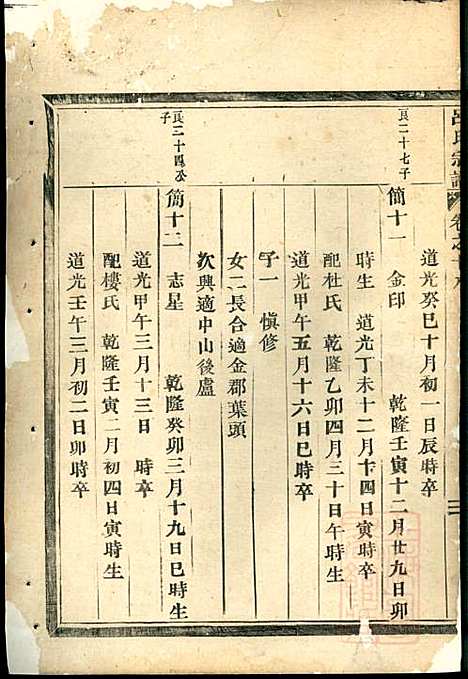 呂氏宗譜
道光癸巳十月初一日辰時卒
良二十七子
簡十一 金印 乾隆壬寅十二月廿九日卯
時生 道光丁未十二月十四日寅時卒
配杜氏 乾隆乙卯四月三十日午時生
道光甲午五月十六日巳時卒
子一 愼修
女二長合適金郡葉頭
次興適中山後盧
良二十四丞
子
簡十二 志星 乾隆癸卯三月十九日巳時生
道光甲午三月十三日 時卒
配樓氏 乾隆壬寅二月初四日寅時生
道光壬午三月初二日卯時卒